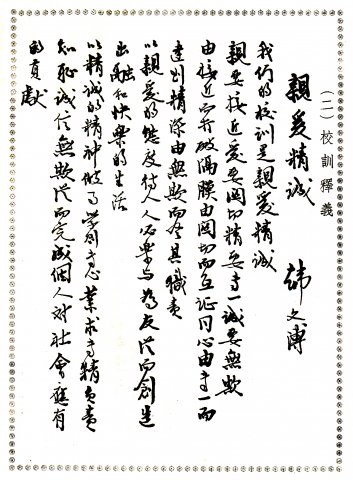 (二) 校訓釋義
親愛精誠 韓文溥
我們的校訓是親愛精誠
親要接近愛要關切精要專一誠要無欺
由接近而破隔膜由關切而互證同心由專一而
達到精深由無欺而全其職責
以親愛的態度待人人必樂與為友從而創造
出融和快樂的生活
以精誠的精神做事學創志業求專精負責
知恥誠信無欺從而完成個人對社會應有
的貢獻